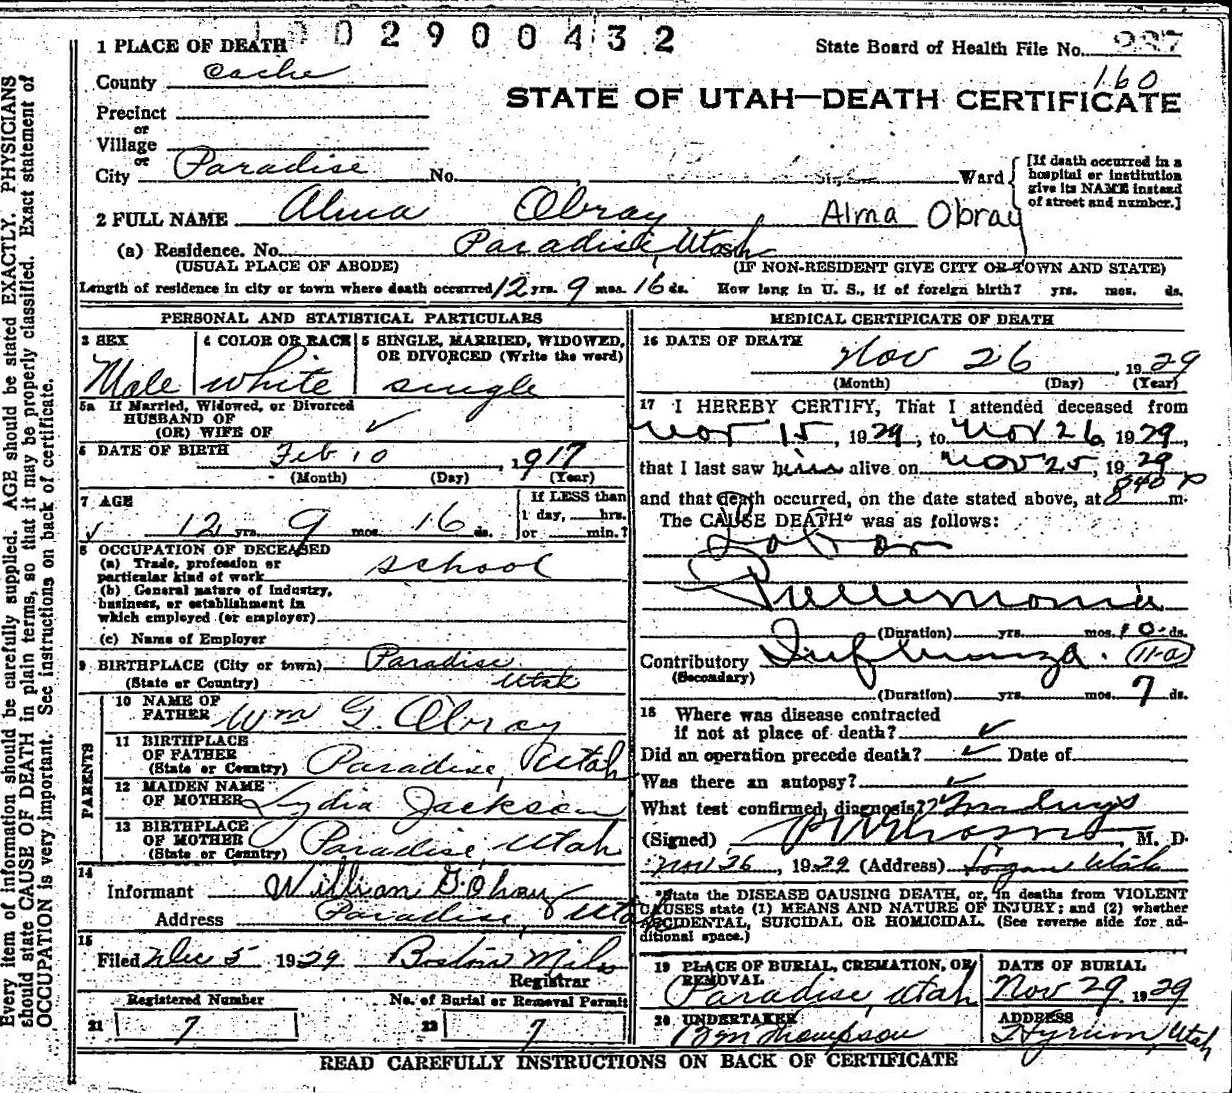 2900432
1 PLACE OF DEATH
State Board of Health File No.
County Cache
160
STATE OF UTAH—DEATH CERTIFICATE
Precinct
or
Village
or
City Paradise No. , Ward
[If death occurred in a
hospital or institution
give its NAME instead
of street and number.]
2 FULL NAME Alma Obray Alma Obray
(a) Residence. No. Paradise, Utah
(USUAL PLACE OF ABODE) (IF NON-RESIDENT GIVE CITY OR TOWN AND STATE)
Length of residence in city or town where death occurred 12 yrs. 9 mos. 16 ds. How long in U. S., if of foreign birth? yrs. mos. ds.
PERSONAL AND STATISTICAL PARTICULARS
3 SEX 4 COLOR OR RACE 5 SINGLE, MARRIED, WIDOWED,
OR DIVORCED (Write the word)
Male white single
5a If Married, Widowed, or Divorced
HUSBAND OF
(OR) WIFE OF
6 DATE OF BIRTH Feb 10, 1917
(Month) (Day) (Year)
7 AGE
If LESS than
1 day, hrs.
12 yrs. 9 mos. 16 ds. or min.?
8 OCCUPATION OF DECEASED
(a) Trade, profession or
particular kind of work school
(b) General nature of industry,
business, or establishment in
which employed (or employer)
(c) Name of Employer
9 BIRTHPLACE (City or town) Paradise
(State or Country) Utah
PARENTS
10 NAME OF
FATHER Wm G. Obray
11 BIRTHPLACE
OF FATHER
(State or Country) Paradise, Utah
12 MAIDEN NAME
OF MOTHER Lydia Jackson
13 BIRTHPLACE
OF MOTHER
(State or Country) Paradise, Utah
14
Informant William G. Obray
Address Paradise, Utah
15
Filed Dec 5 1929 Boston Miles
Registrar
Registered Number No. of Burial or Removal Permit
21 7 22 7
MEDICAL CERTIFICATE OF DEATH
16 DATE OF DEATH
Nov 26, 1929
(Month) (Day) (Year)
17 I HEREBY CERTIFY, That I attended deceased from
Nov 15, 1929, to Nov 26 1929,
that I last saw him alive on Nov 25, 1929
and that death occurred, on the date stated above, at 840 P m.
The CAUSE DEATH* was as follows:
Lobar
Pneumonia
(Duration) yrs. mos. 10 ds.
Contributory Influenza. 11-a
(Secondary)
(Duration) yrs. mos. 7 ds.
18 Where was disease contracted
if not at place of death?
Did an operation precede death? Date of
Was there an autopsy?
What test confirmed diagnosis?
(Signed) , M. D.
Nov 26, 1929 (Address) Logan Utah
*State the DISEASE CAUSING DEATH, or, in deaths from VIOLENT
CAUSES state (1) MEANS AND NATURE OF INJURY; and (2) whether
ACCIDENTAL, SUICIDAL OR HOMICIDAL. (See reverse side for ad-
ditional space.)
19 PLACE OF BURIAL, CREMATION, OR
REMOVAL
Paradise, Utah
DATE OF BURIAL
Nov 29, 1929
20 UNDERTAKER
Thompson
ADDRESS
Hyrum, Utah
READ CAREFULLY INSTRUCTIONS ON BACK OF CERTIFICATE
Every item of information should be carefully supplied. AGE should be stated EXACTLY. PHYSICIANS
should state CAUSE OF DEATH in plain terms, so that it may be properly classified. Exact statement of
OCCUPATION is very important. See instructions on back of certificate.